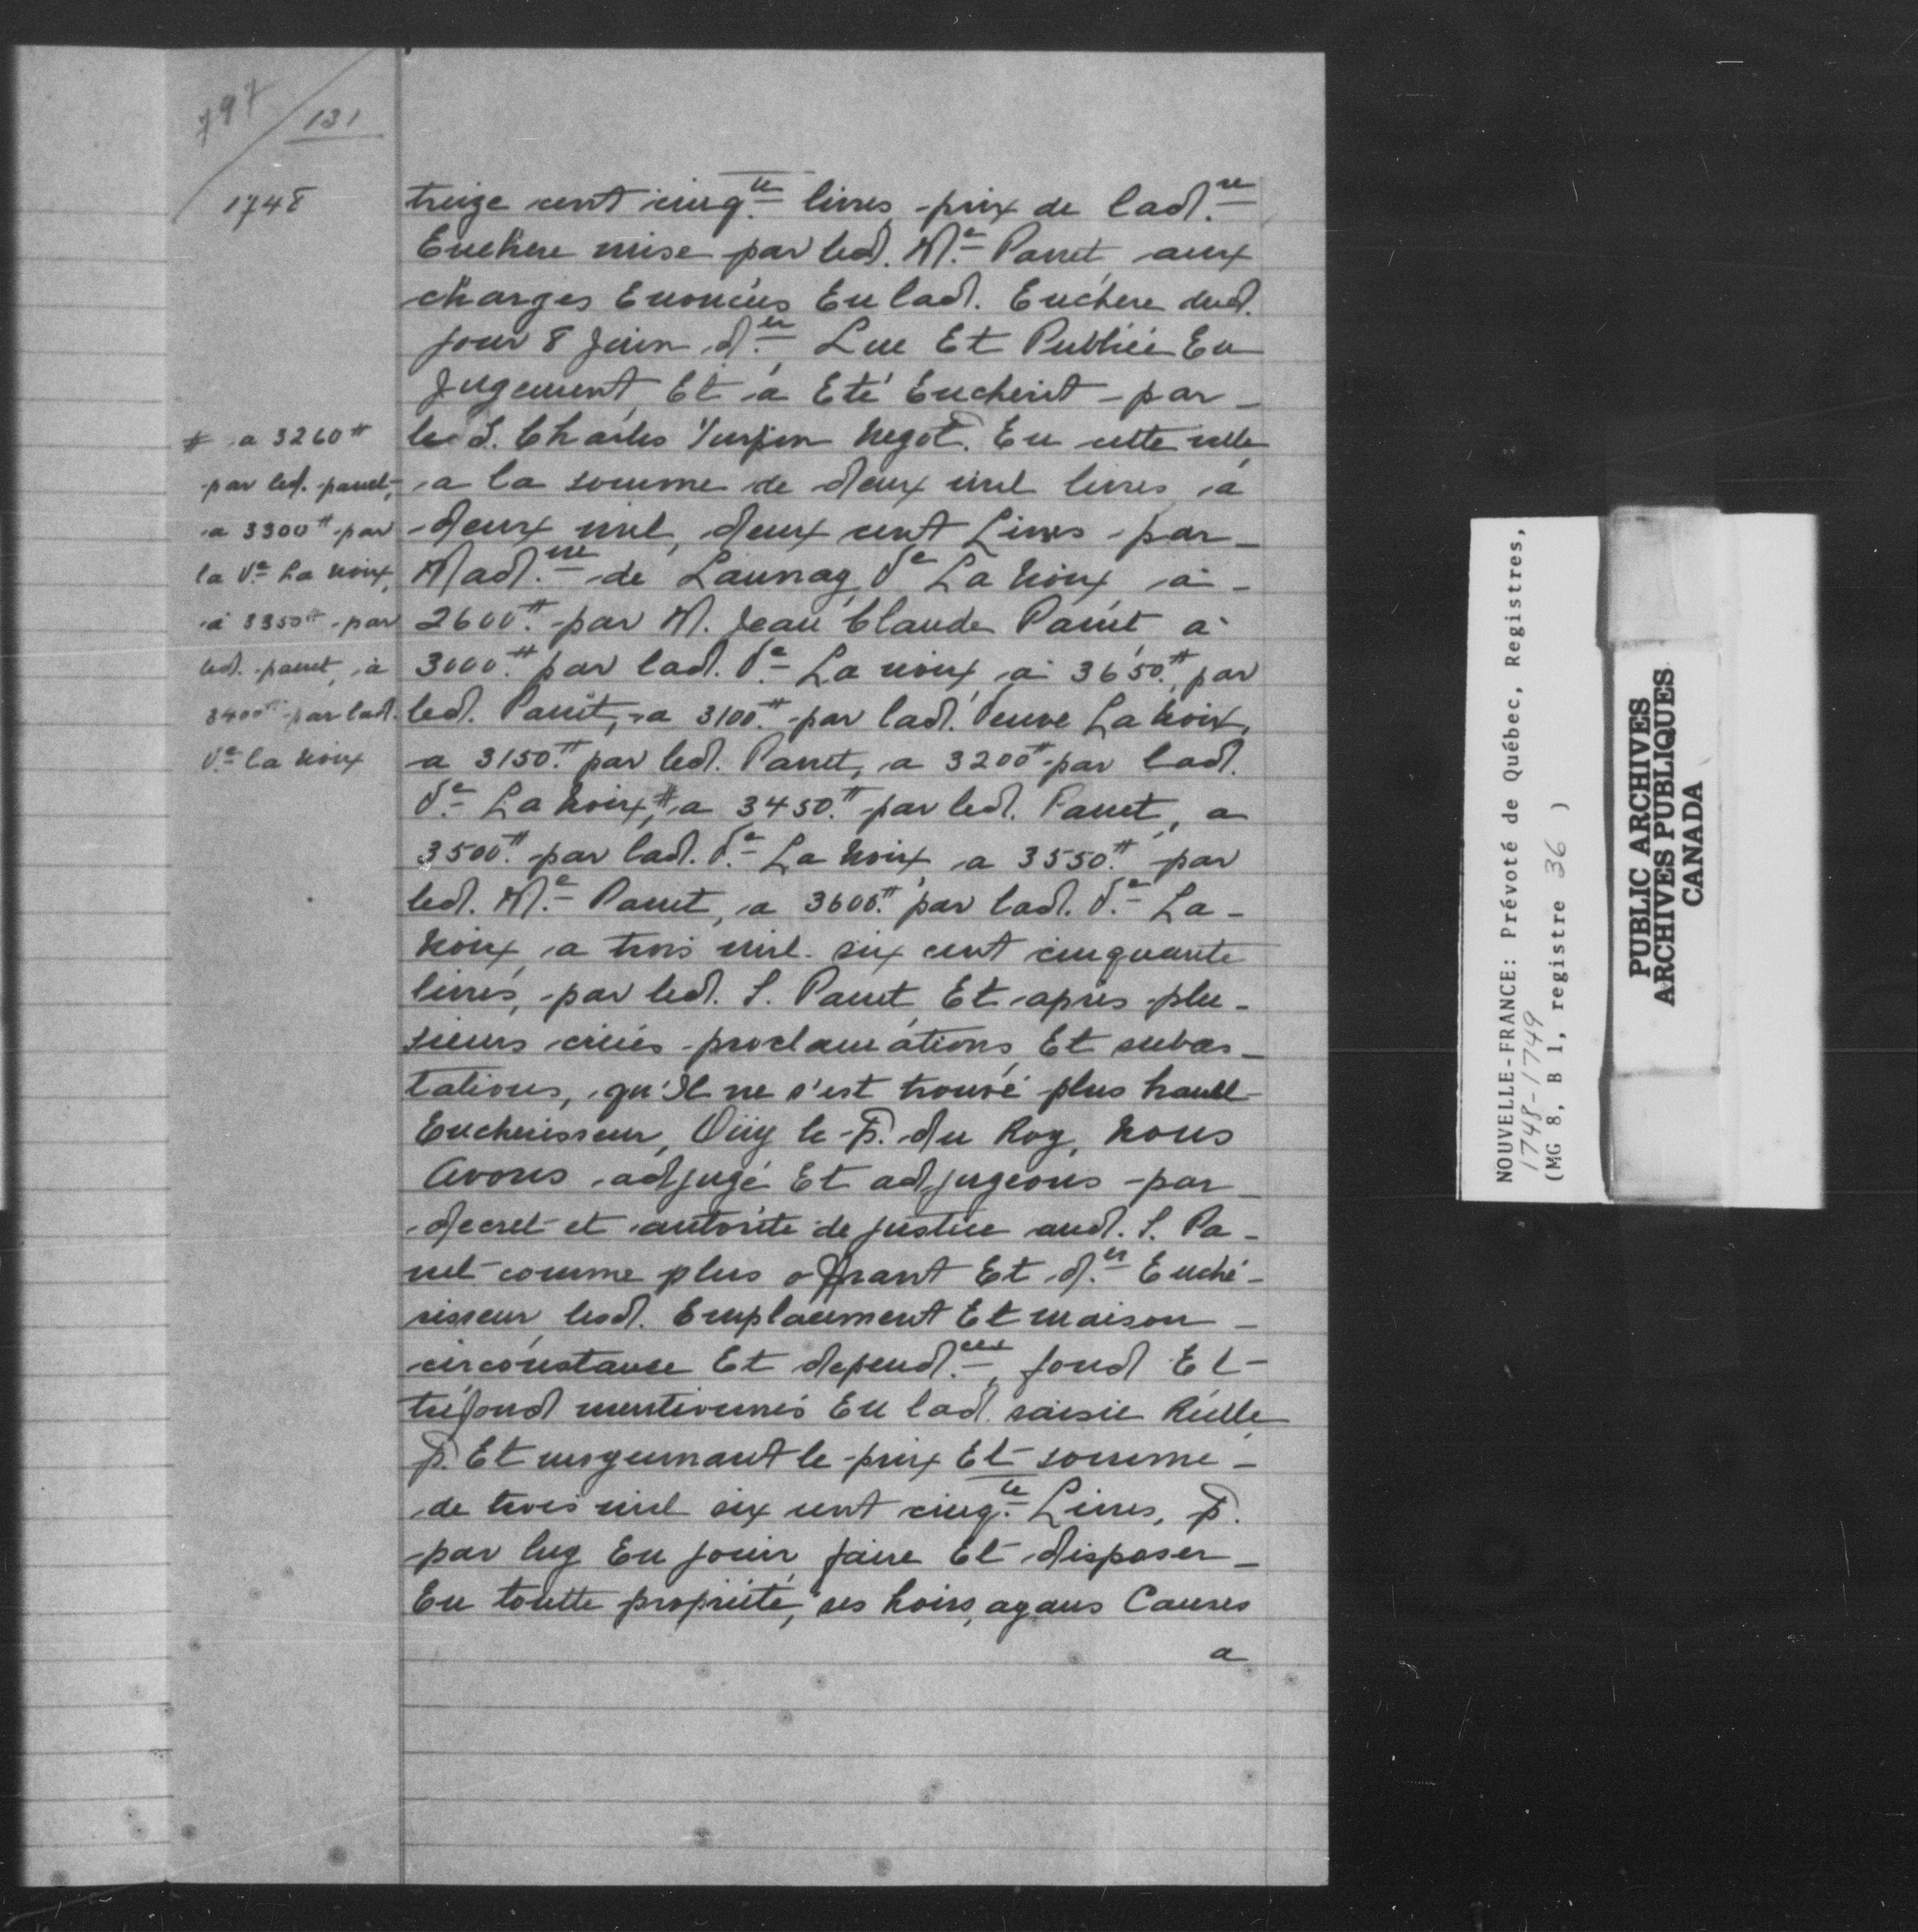 797 / 131
1748
treize cent cinq.te livres, prix de lad. re
Enchere mise par led. Me. Panet, aux
charges Enoncées En lad. Enchere dud.
jour 8 Juin d.er, Lue Et Publiée En
Jugement, Et a Eté Encherit par
le S. Charles Turpin Negot. En cette ville,
a la somme de deux mil livres, à
deux mil, deux cent Livres par
Mad.me de Launay, Ve La Noix, à
2600.# par M. Jean Claude Panet, à
3000.# par lad. Ve. La noix, à 3650.#, par
led. Panet, a 3100.# par lad. Veuve La Noix,
a 3150.# par led. Panet, a 3200# par lad.
Ve. La Noix,# a 3450.# par led. Panet, a
3500.# par lad. Ve. La Noix, a 3550.# par
led. Me. Panet, a 3600.# par lad. Ve. La-
Noix, a trois mil six cent cinquante
livres, par led. S. Panet, Et après plu-
sieurs criées proclamations, Et subas-
tations, qu'Il ne s'est trouvé plus hault
Encherisseur, Oüy le P. du Roy, Nous
Avons adjugé Et adjugeons par
decret et autorité de justice aud. S. Pa-
net comme plus offrant Et d.er Enché-
risseur, lesd. Emplacement Et maison
circonstance Et depend.ces, fond Et
tréfond mentionnés En lad. saisie Réelle,
P. Et moyennant le prix Et somme
de trois mil six cent cinq.te Livres, P.
par luy En jouir, faire Et disposer
En toutte proprieté, ses hoirs, ayans Causes
a
# a 3260#
par led. panet,
a 3300# par
la Ve. La Noix,
à 3350# par
led. panet, à
3400# par lad.
Ve. la Noix
NOUVELLE-FRANCE: Prévoté de Québec, Registres,
1748-1749
(MG 8, B 1, registre 36 )
PUBLIC ARCHIVES
ARCHIVES PUBLIQUES
CANADA